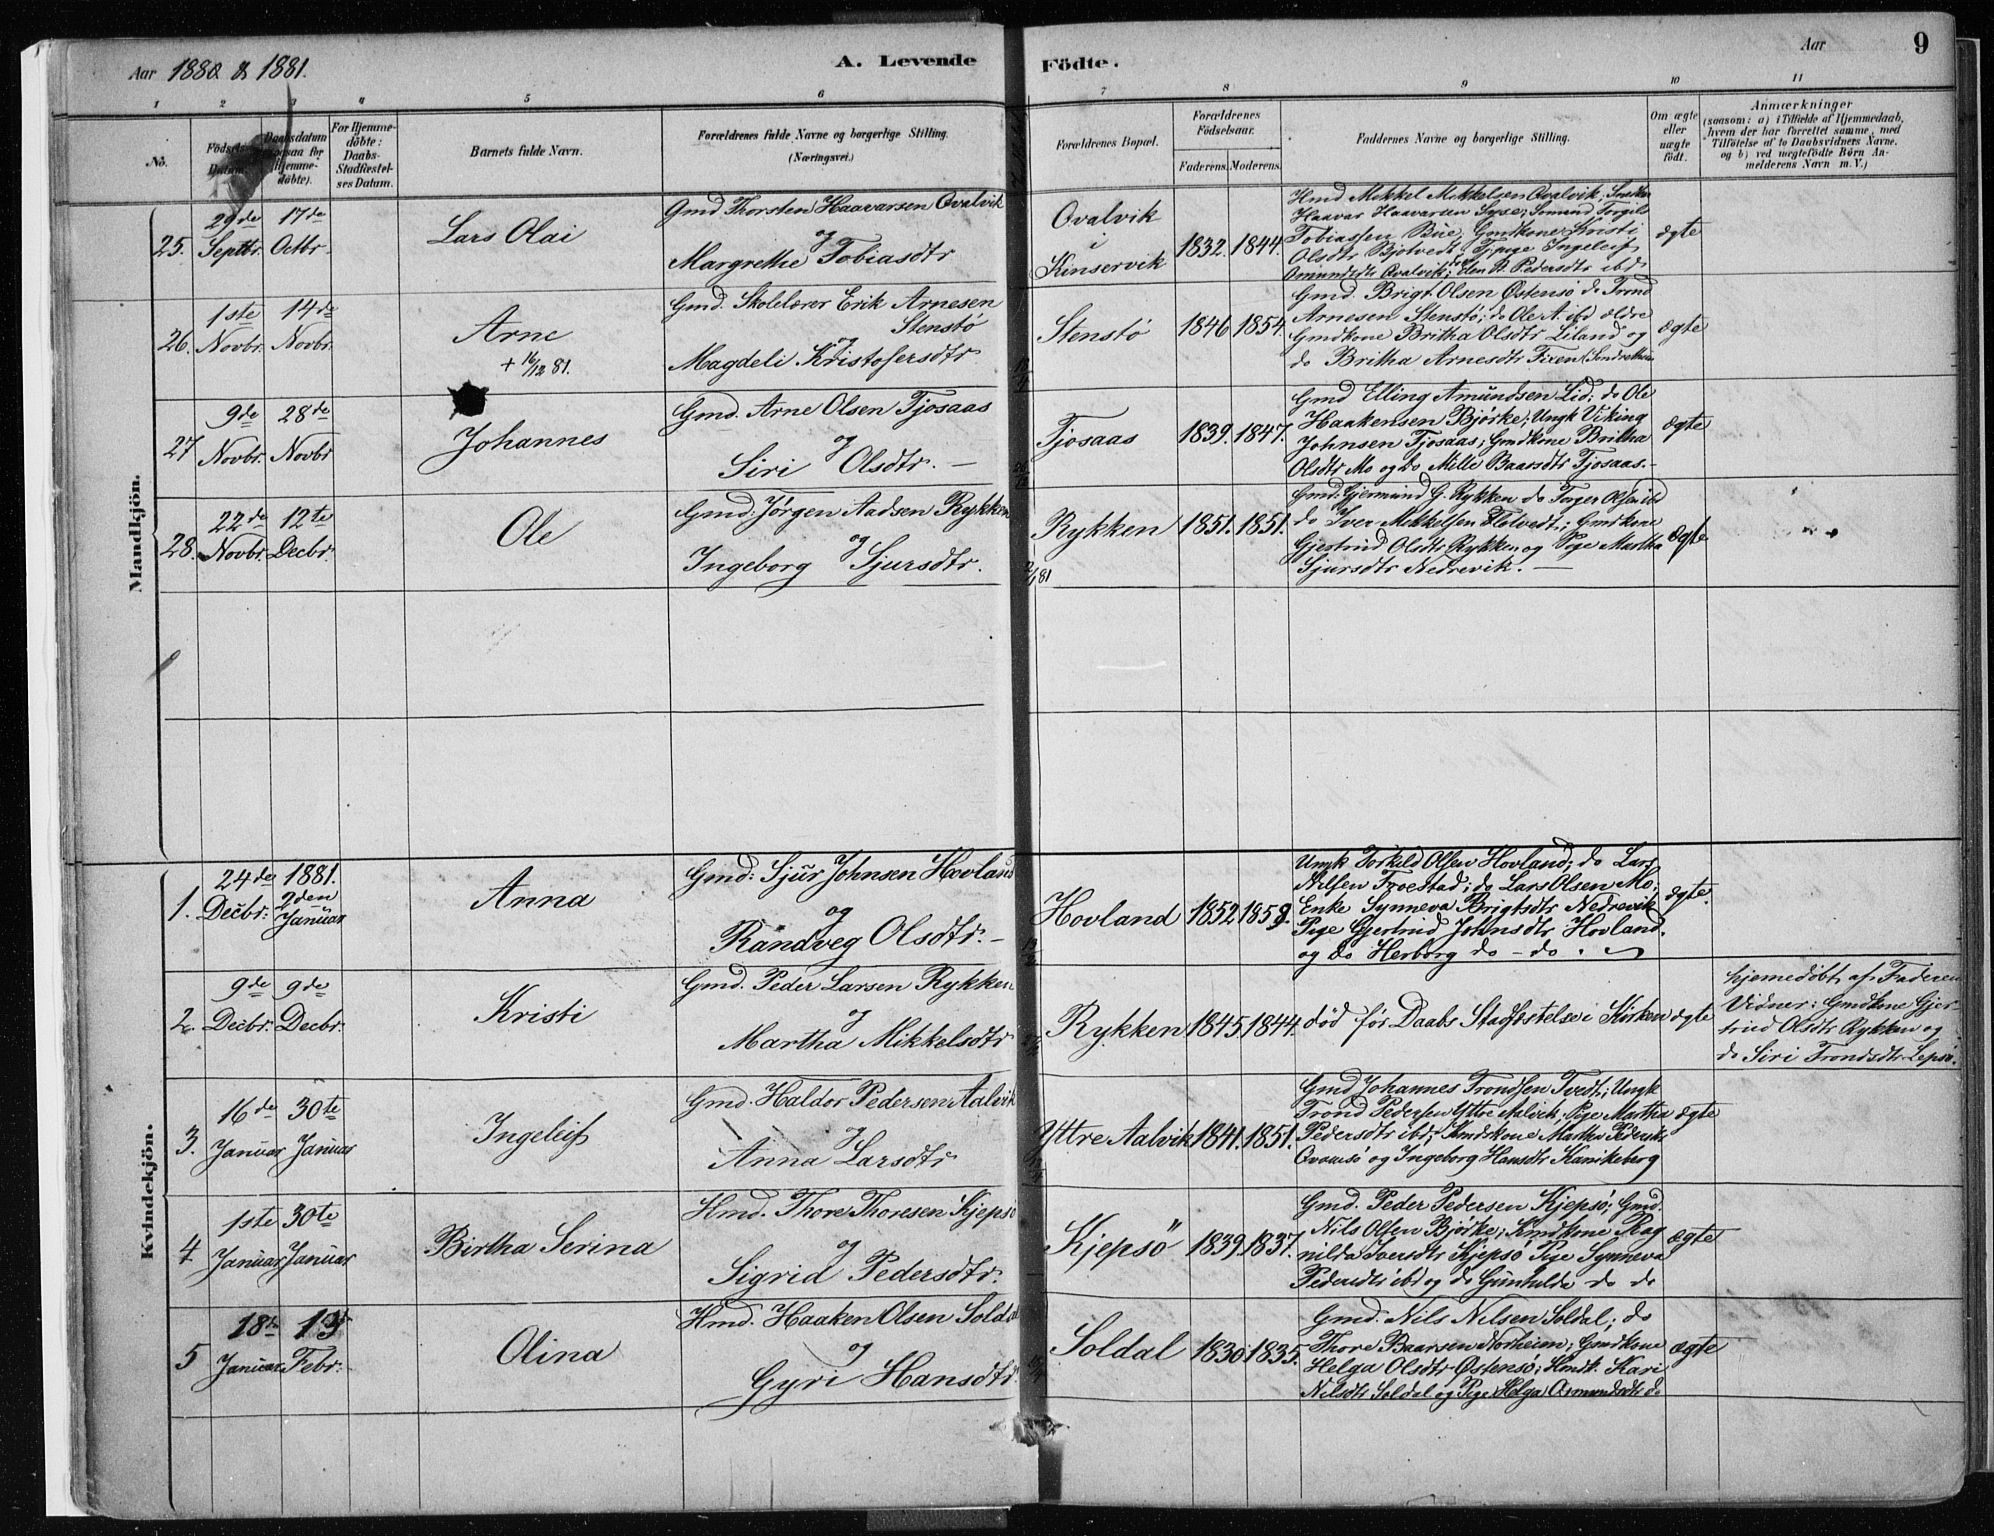 Aar 1880 & 1881.
A. Levende Födte.
Aar 9
1 2 3 4 5 6 7 8 9 10 11
No.
Födsels-Datum.
Daabsdatum (ogsaa for Hjemme-döbte).
For Hjemme-döbte: Daabs-Stadfæstel-ses Datum.
Barnets fulde Navn.
Forældrenes fulde Navne og borgerlige Stilling. (Næringsvei.)
Forældrenes Bopæl.
Forældrenes Födselsaar.
Faderens. Moderens.
Faddernes Navne og borgerlige Stilling.
Om ægte eller uægte födt.
Anmærkninger
(saasom: a) i Tilfælde af Hjemmedaab,
hvem der har forrettet samme, med
Tilföielse af to Daabsvidners Navne.
og b) ved uægtefödte Börn An-
melderens Navn m. V.)
Mandkjön.
25. 29de Septbr. 17de Octbr.
Lars Olai
Gmd Thorsten Haavarsen Qvalvik
og
Margrethe Tobiasdtr
Qvalvik
i
Kinservik
1832. 1844.
Hmd Mikkel Mikkelsen Qvalvik;
Haavar Haavarsen Syse;
Tobiassen Bue, Gmdkone Kristi
Olsdtr
Qvalvik; Pedersdtr ibd
ægte
26. 1ste Novbr. 14de Novbr.
Arne
+ 16/12 81.
Gmd. Skolelærer Erik Arnesen
Stenstø
og
Magdeli Kristofersdtr
Stenstø
1846 1854.
Gmd. Brigt Olsen Østensø do Trond
Arnesen Stenstø; do Ole A. ibd ældre
Gmdkone Britha Olsdtr Liland og
do Britha Arnesdtr Fixen
ægte
27 9de Novbr. 28de Novbr
Johannes
Gmd. Arne Olsen Tjosaas
og
Siri Olsdtr. —
Tjosaas
1839. 1847.
Gmd Elling Amundsen Lid; do Ole
Haakensen Bjørke; Ungk Viking
Johnsen Tjosaas; Gmdkone Britha
Olsdtr Mo og do Mille Baarsdtr Tjosaas.-
ægte
28. 22de Novbr. 12te Decbr.
Ole
Gmd: Jörgen Aadsen Rykken
og
Ingeborg Sjursdtr.
Rykken
1851. 1851.
81
Gmd: Gjermund G. Rykken do Olsen ibd
do Iver Mikkelsen; Gmdkone
Gjertrud Olsdtr Rykken og Pige Martha
Sjursdtr Nedrevik. —
ægte
Kvindekjön.
1. 24de Decbr: 1881. 2den Januar
Anna
Gmd: Sjur Johnsen Hovland
og
Randveg Olsdtr. —
Hovland
1852. 1858.
Ungk Torkild Olsen Hovland; do Lars
Nilsen Troestad; do Lars Olsen Mo;
Enke Synneva Brigtsdtr Nedrevik
Pige Gjertrud Johnsdtr Hovland.
og do Herborg do - do.
ægte.
2. 9de Decbr. 9de Decbr.
Kristi
Gmd. Peder Larsen Rykken
og
Martha Mikkelsdtr
Rykken
1845. 1844.
død før Daabs Stadfæstelse i Kirken
ægte
hjemedøbt af Faderen
Vidner: Gmdkone Gjer-
trud Olsdtr Rykken og
do Siri Trondsdtr Lepsø.
3. 16de Januar 30te Januar
Ingeleif
Gmd. Haldor Pedersen Aalvik
og
Anna Larsdtr
Yttre Aalvik
1841. 1851.
Gmd Johannes Trondsen Tvedt; Ungk
Trond Pedersen Yttre Aalvik, Pige Martha
Pedersdtr ibd; Kmdskone Martha Pedersdtr
og Ingeborg Hansdtr Kanikeberg
ægte
4 1ste Januar 30te Januar
Birtha Serina
Hmd. Thore Thoresen Kjepsø
og
Sigrid Pedersdtr.
Kjepsö
1839. 1837.
Gmd. Peder Pedersen Kjepsø; Gmd.
Nils Olsen Bjørke; Kmdkone Rag
nilda Iversdtr Kjepsø Pige Synneva
Pedersdtr ibd og do Gunhilde do do
ægte
5 18de Januar 13 Febr.
Olina
Hmd. Haaken Olsen Soldal
og
Gyri Hansdtr
Soldal
1830 1835.
Gmd. Nils Nilsen Soldal; do
Thore Baarsen Norheim; Gmdkone
Helga Olsdtr Østensø; Hmdk. Kari
Nilsdtr Soldal og Pige Helga Osmundsdtr do
ægte